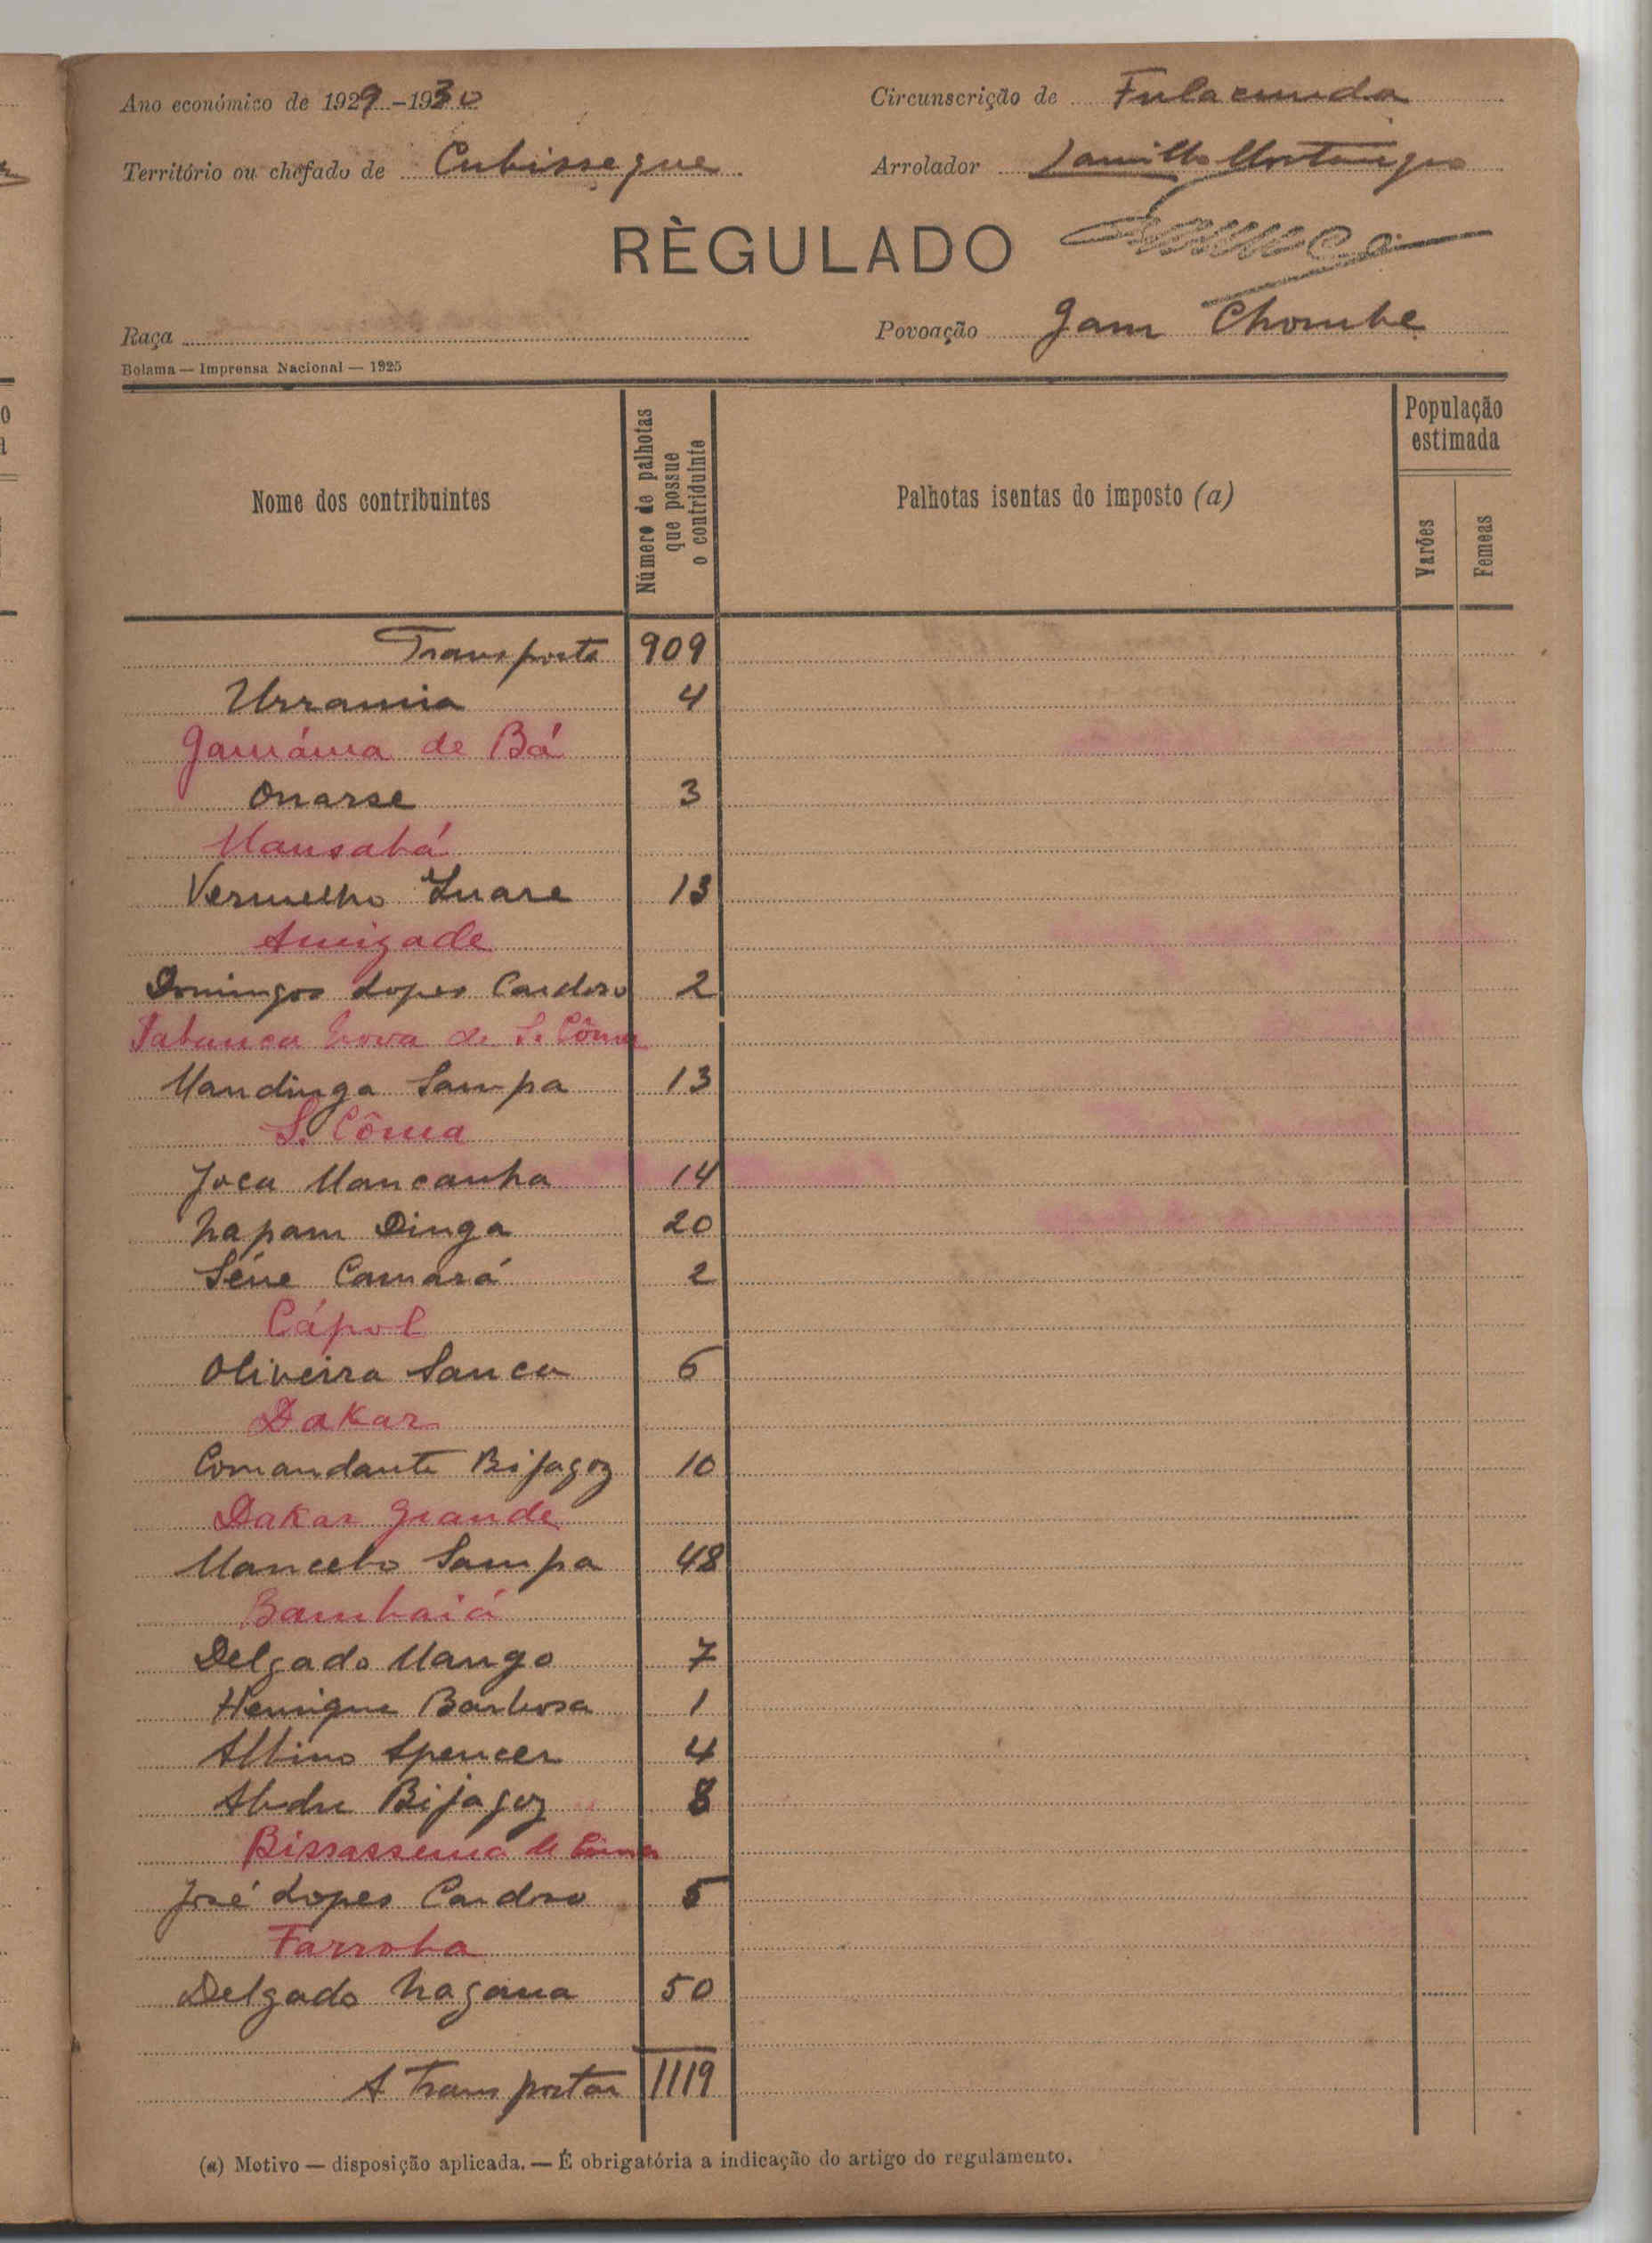 Ano económico de 1929-1930
Circunscrição de Fulacunda
Território ou chefado de Cubisseque
Arrolador
RÈGULADO
Raça
Povoação Jam Chombe
Bolama — Imprensa Nacional — 1925
Nome dos contribuintes
Número de palhotas que possue o contriduinte
Palhotas isentas do imposto (a)
População estimada
Varões
Femeas
Transporte 909
Urramia 4
Gamáma de Bá
Onarse 3
Mansabá
Vermelho Inare 13
Amizade
Domingos Lopes Cardoso 2
Tabanca Nova de S. Côma
Mandinga Sampa 13
S. Côma
Joca Mancanha 14
Napam Dinga 20
Séne Camará 2
Cápol
Oliveira Sanca 6
Dakar
Comandante Bijagoz 10
Dakar Grande
Mancebo Sampa 48
Bambaiá
Delgado Mango 7
Henrique Barbosa 1
Albino Spencer 4
Abdu Bijagoz 8
Bissassema de Cima
José Lopes Cardoso 5
Farroba
Delgado Nagana 50
A Transportar 1119
(a) Motivo — disposição aplicada. — É obrigatória a indicação do artigo do regulamento.